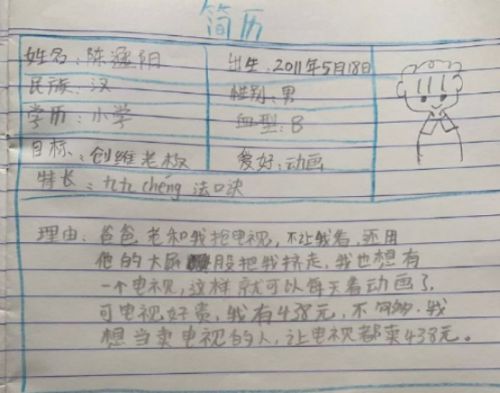 简历
姓名：陈泽阳 出生：2011年5月18日
民族：汉 性别：男
学历：小学 血型：B
目标：创维老板 爱好：动画
特长：九九chéng法口决
理由：爸爸老和我抢电视，不让我看，还用
他的大屁股把我挤走，我也想有
一个电视，这样就可以每天看动画了，
可电视好贵，我有438元，不够，我
想当卖电视的人，让电视都卖438元。